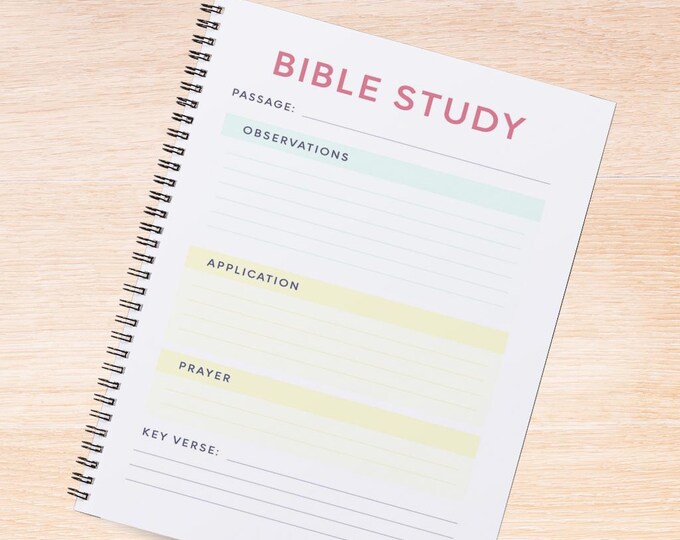 BIBLE STUDY
PASSAGE:
OBSERVATIONS
APPLICATION
PRAYER
KEY VERSE: